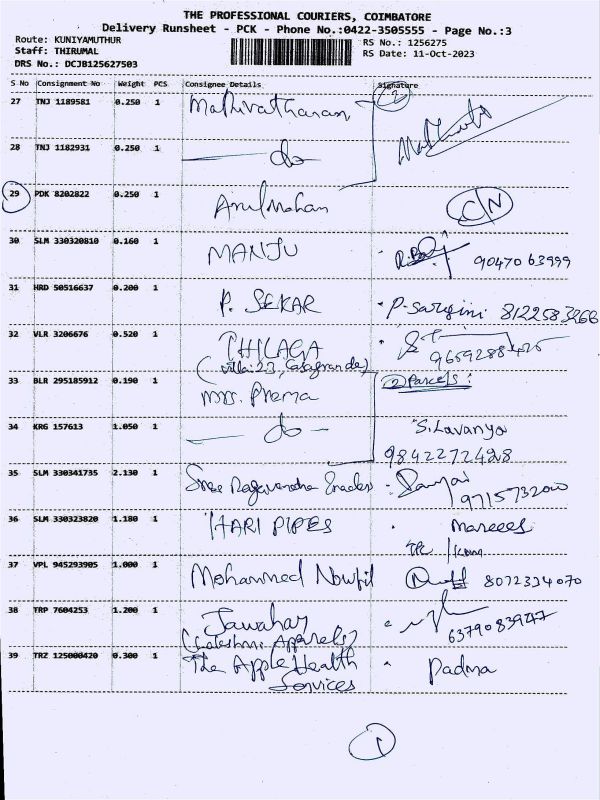 THE PROFESSIONAL COURIERS, COIMBATORE
Delivery Runsheet - PCK - Phone No.:0422-3505555 - Page No.:3
Route: KUNIYAMUTHUR
Staff: THIRUMAL
DRS No.: DCJB125627503
RS No.: 1256275
RS Date: 11-Oct-2023
S No Consignment No Weight PCS Consignee Details Signature
27 TNJ 1189581 0.250 1 Mathivathanan 2
28 TNJ 1182931 0.250 1 do
29 PDK 8202822 0.250 1 Anilmohan C/N
30 SLM 330320810 0.160 1 MANJU 90470 63999
31 HRD 50516637 0.200 1 P. SEKAR P. Sargini 8122583266
32 VLR 3206676 0.520 1 THILAGA
(villa: 23, Casagrande) 9659288425
33 BLR 295185912 0.190 1 Mrs. Prema 2 Parcels:
34 KRG 157613 1.050 1 do S. Lavanya
9842272428
35 SLM 330341735 2.130 1 Sree Ragavendra 9715732000
36 SLM 330323820 1.180 1 HARI PIPES
37 VPL 945293905 1.000 1 Mohammed Nowfil 8072334070
38 TRP 7604253 1.200 1 Jawahar
Apparels) 6379083947
39 TRZ 125000420 0.300 1 The Apple Health Padma
Services
1